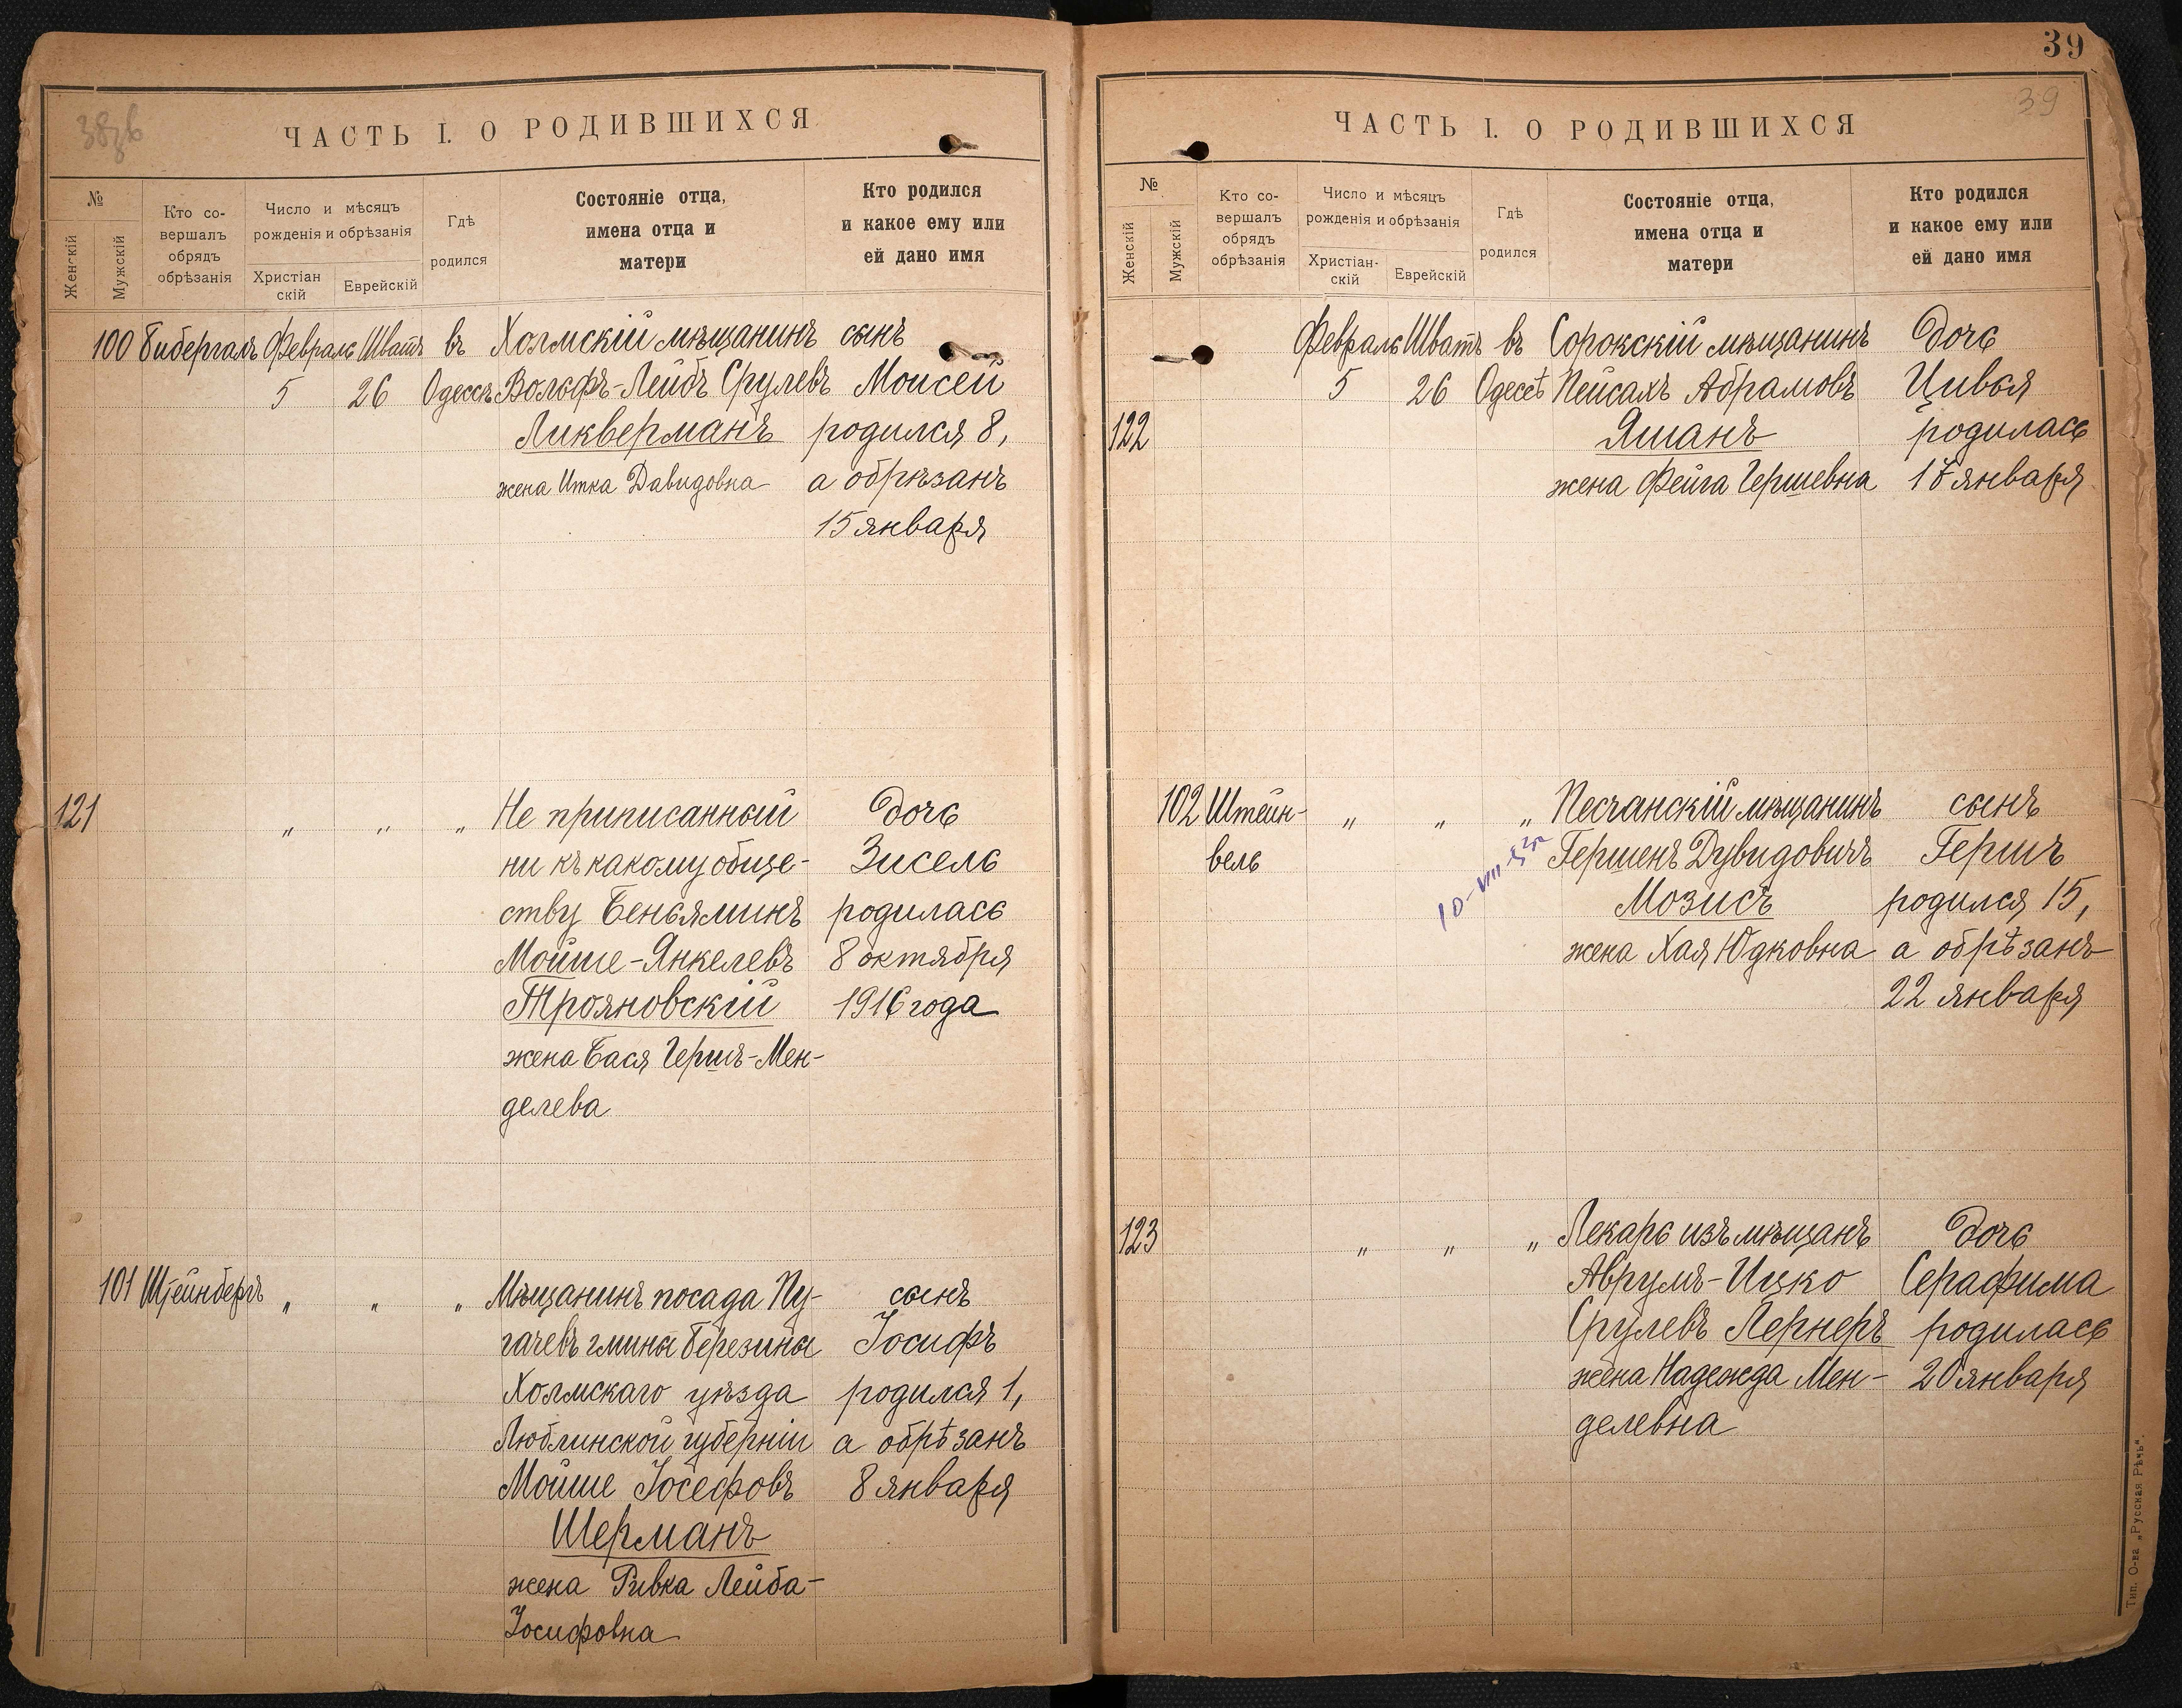 38 зв
ЧАСТЬ I. О РОДИВШИХСЯ
№
Женскій
Мужскій
Кто со-
вершалъ
обрядъ
обрѣзанія
Число и мѣсяцъ
рожденія и обрѣзанія
Христіан
скій
Еврейскій
Гдѣ
родился
Состояніе отца,
имена отца и
матери
Кто родился
и какое ему или
ей дано имя
100 Бибергалъ Февраль Шватъ въ Холмскій мѣщанинъ сынъ
5 26 Одессѣ Вольфъ-Лейбъ Срулевъ Моисей
Ликверманъ родился 8,
жена Итка Давидовна а обрѣзанъ
15 января
121 „ „ „ Не приписанный дочь
ни къ какому обще- Зисель
ству Беньяминъ родилась
Мойше-Янкелевъ 8 октября
Трояновскій 1916 года
жена Бася Гершъ-Мен-
делева
101 Штейнбергъ „ „ „ Мѣщанинъ посада Пу- сынъ
гачевъ гмины Березины Іосифъ
Холмскаго уѣзда родился 1,
Люблинской губерніи а обрѣзанъ
Мойше Іосефовъ 8 января
Шерманъ
жена Ривка Лейба-
Іосифовна
39
39
ЧАСТЬ I. О РОДИВШИХСЯ
№
Женскій
Мужскій
Кто со-
вершалъ
обрядъ
обрѣзанія
Число и мѣсяцъ
рожденія и обрѣзанія
Христіан-
скій
Еврейскій
Гдѣ
родился
Состояніе отца,
имена отца и
матери
Кто родился
и какое ему или
ей дано имя
Февраль Шватъ въ Сорокскій мѣщанинъ дочь
5 26 Одессѣ Пейсахъ Абрамовъ Цивья
122 Яшанъ родилась
жена Фейга Гершевна 17 января
102 Штейн- „ „ „ Песчанскій мѣщанинъ сынъ
вель Гершенъ Дувидовичъ Гершъ
10-VIII-52г
Мозисъ родился 15,
жена Хая Юдковна а обрѣзанъ
22 января
123 „ „ „ Лекарь изъ мѣщанъ дочь
Аврумъ-Ицко Серафима
Срулевъ Лернеръ родилась
жена Надежда Мен- 20 января
делевна
Тип. О-ва „Русская Рѣчь“.